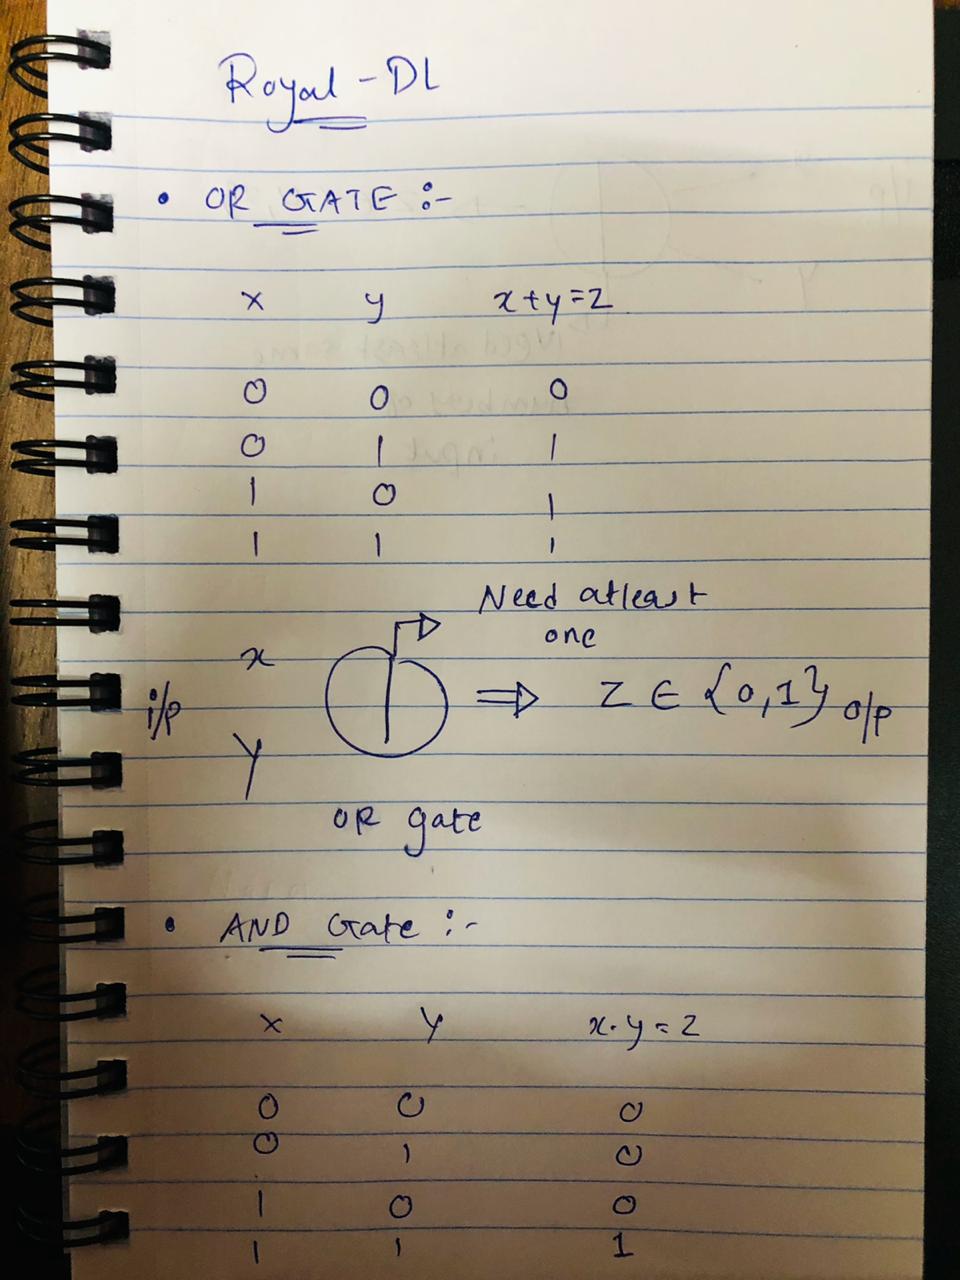 Royal - DL
• OR GATE :-
x y x+y=z
0 0 0
0 1 1
1 0 1
1 1 1
Need atleast
one
x
i/p 1 ⇒ Z ∈ {0,1} o/p
y
OR gate
• AND Gate :-
x y x.y=z
0 0 0
0 1 0
1 0 0
1 1 1